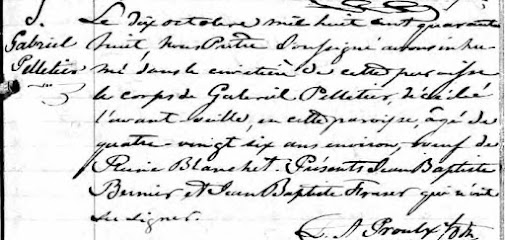 S.
Gabriel
Pelletier
Le dix octobre mil huit cent quarante
huit Nous Prêtre Soussigné avons inhu-
mé dans le cimetière de cette paroisse
le corps de Gabriel Pelletier, décédé
l'avant veille, en cette paroisse, âgé de
quatre-vingt six ans environ, veuf de
Blanchet. Présents Jean Baptiste
Bernier et Jean Baptiste Fraser qui n'ont
su signer.
L. A Proulx Ptre